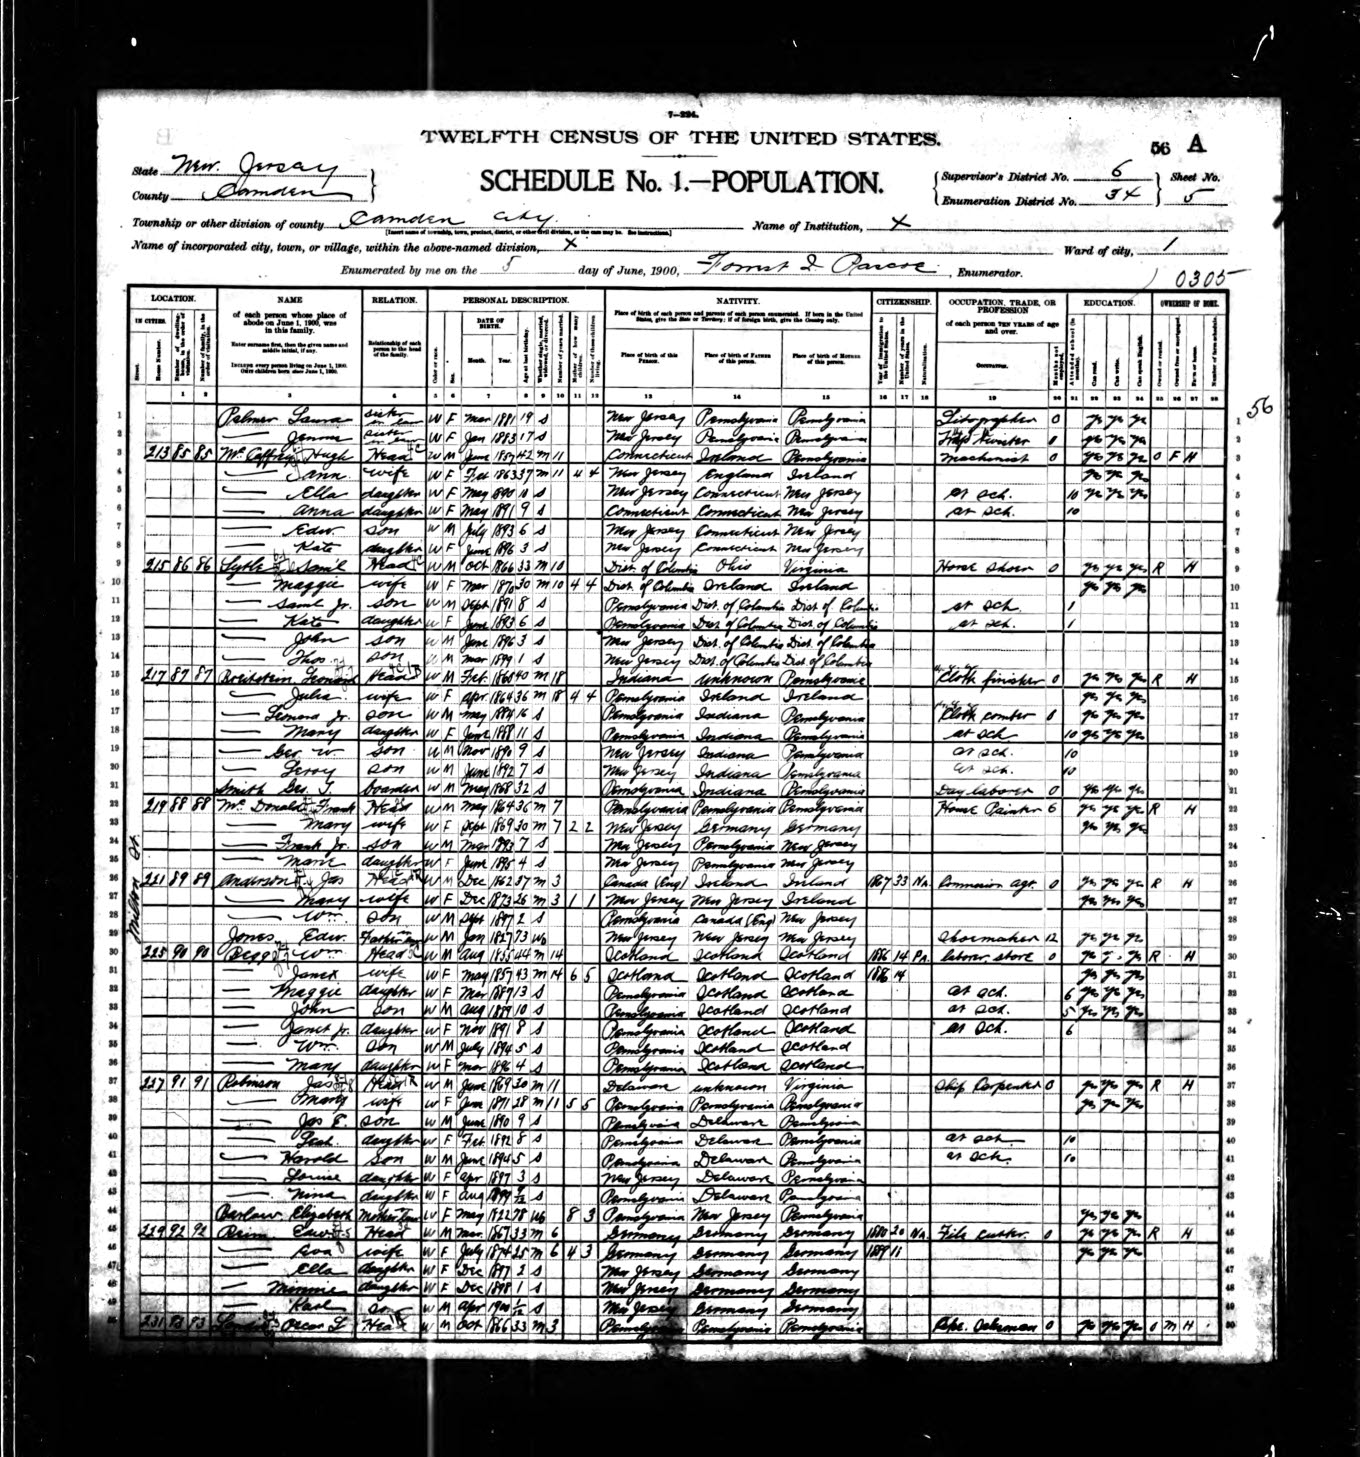 7-224.
TWELFTH CENSUS OF THE UNITED STATES.
56 A
State New Jersey
County Camden
SCHEDULE No. 1.—POPULATION.
Supervisor's District No. 6
Enumeration District No. 34
Sheet No. 5
Township or other division of county Camden City
[Insert name of township, town, precinct, district, or other civil division, as the case may be. See instructions.]
Name of Institution, X
Name of incorporated city, town, or village, within the above-named division, X
Ward of city, 1
Enumerated by me on the 5 day of June, 1900, Enumerator.
0305
56
LOCATION. NAME RELATION. PERSONAL DESCRIPTION. NATIVITY. CITIZENSHIP. OCCUPATION, TRADE, OR PROFESSION EDUCATION. OWNERSHIP OF HOME.
IN CITIES. of each person whose place of abode on June 1, 1900, was in this family.
Enter surname first, then the given name and middle initial, if any.
INCLUDE every person living on June 1, 1900. OMIT children born since June 1, 1900.
Relationship of each person to the head of the family.
DATE OF BIRTH. Month. Year.
Place of birth of each person and parents of each person enumerated. If born in the United States, give the State or Territory; if of foreign birth, give the Country only.
Place of birth of this PERSON. Place of birth of FATHER of this person. Place of birth of MOTHER of this person.
of each person TEN YEARS of age and over.
OCCUPATION.
1 Palmer Laura sister in law W F Mar 1881 19 S New Jersey Pennsylvania Pennsylvania Litographer 0 yes yes yes 1
2 — Jennie sister in law W F Jan 1883 17 S New Jersey Pennsylvania Pennsylvania 0 yes yes yes 2
3 213 85 85 Hugh Head W M June 1857 42 M 11 Connecticut Ireland Pennsylvania Machinist 0 yes yes yes O F H 3
4 — Ann wife W F Feb 1863 37 M 11 4 4 New Jersey England Ireland yes yes yes 4
5 — Ella daughter W F May 1890 10 S New Jersey Connecticut New Jersey at sch. 10 yes yes yes 5
6 — Anna daughter W F May 1891 9 S Connecticut Connecticut New Jersey at sch. 10 6
7 — Edw. son W M July 1893 6 S New Jersey Connecticut New Jersey 7
8 — Kate daughter W F June 1896 3 S New Jersey Connecticut New Jersey 8
9 215 86 86 Lytle Saml Head W M Oct 1866 33 M 10 Dist. of Columbia Ohio Virginia Horse Shoer 0 yes yes yes R H 9
10 — Maggie wife W F Mar 1870 30 M 10 4 4 Dist of Columbia Ireland Ireland yes yes yes 10
11 — Saml Jr. son W M Sept 1891 8 S Pennsylvania Dist. of Columbia Dist of Columbia at sch. 1 11
12 — Kate daughter W F June 1893 6 S Pennsylvania Dist of Columbia Dist of Columbia at sch. 1 12
13 — John son W M June 1896 3 S New Jersey Dist of Columbia Dist of Columbia 13
14 — Thos. son W M Mar 1899 1 S New Jersey Dist. of Columbia Dist of Columbia 14
15 217 87 87 Leonard Head W M Feb 1860 40 M 18 Indiana unknown Pennsylvania Cloth finisher 0 yes yes yes R H 15
16 — Julia wife W F Apr 1864 36 M 18 4 4 Pennsylvania Ireland Ireland yes yes yes 16
17 — Leonard Jr. son W M May 1884 16 S Pennsylvania Indiana Pennsylvania Cloth comber 0 yes yes yes 17
18 — Mary daughter W F June 1888 11 S Pennsylvania Indiana Pennsylvania at sch 10 yes yes yes 18
19 — Geo. W. son W M Nov 1890 9 S New Jersey Indiana Pennsylvania at sch. 10 19
20 — Leroy son W M June 1892 7 S New Jersey Indiana Pennsylvania at sch. 10 20
21 Smith Geo. T. boarder W M May 1868 32 S Pennsylvania Indiana Pennsylvania Day laborer 0 yes yes yes 21
22 219 88 88 McDonald Frank Head W M May 1864 36 M 7 Pennsylvania Pennsylvania Pennsylvania House Painter 6 yes yes yes R H 22
23 — Mary wife W F Sept 1869 30 M 7 2 2 New Jersey Germany Germany yes yes yes 23
24 — Frank Jr. son W M Mar 1893 7 S New Jersey Pennsylvania New Jersey 24
25 — Marie daughter W F June 1895 4 S New Jersey Pennsylvania New Jersey 25
26 221 89 89 Anderson Jas Head W M Dec 1862 37 M 3 Canada (Eng) Ireland Ireland 1867 33 Na Commission agt. 0 yes yes yes R H 26
27 — Mary wife W F Dec 1873 26 M 3 1 1 New Jersey New Jersey Ireland yes yes yes 27
28 — Wm. son W M Sept 1897 2 S Pennsylvania Canada (Eng) New Jersey 28
29 Jones Edw. Father in law W M Jan 1827 73 Wd New Jersey New Jersey New Jersey Shoemaker 12 yes yes yes 29
30 225 90 90 Begg Wm Head W M Aug 1855 44 M 14 Scotland Scotland Scotland 1886 14 Pa. laborer store 0 yes yes yes R H 30
31 — Janet wife W F May 1857 43 M 14 6 5 Scotland Scotland Scotland 1886 14 31
32 — Maggie daughter W F Mar 1887 13 S Pennsylvania Scotland Scotland at sch. 6 yes yes yes 32
33 — John son W M Aug 1889 10 S Pennsylvania Scotland Scotland at sch. 5 yes yes yes 33
34 — Janet Jr. daughter W F Nov 1891 8 S Pennsylvania Scotland Scotland at sch. 6 34
35 — Wm. son W M July 1894 5 S Pennsylvania Scotland Scotland 35
36 — Mary daughter W F Mar 1896 4 S Pennsylvania Scotland Scotland 36
37 227 91 91 Robinson Jas Head W M June 1869 30 M 11 Delaware unknown Virginia Ship Carpenter 0 yes yes yes R H 37
38 — Mary wife W F June 1871 28 M 11 5 5 Pennsylvania Pennsylvania Pennsylvania yes yes yes 38
39 — Jas E. son W M June 1890 9 S Pennsylvania Delaware Pennsylvania 39
40 — Leah daughter W F Feb 1892 8 S Pennsylvania Delaware Pennsylvania at sch. 10 40
41 — Harold son W M June 1894 5 S Pennsylvania Delaware Pennsylvania at sch. 10 41
42 — Louise daughter W F Apr 1897 3 S New Jersey Delaware Pennsylvania 42
43 — Nina daughter W F Aug 1899 9/12 S Pennsylvania Delaware Pennsylvania 43
44 Barlow Elizabeth mother in law W F May 1822 78 Wd 8 3 Pennsylvania New Jersey Pennsylvania yes yes yes 44
45 229 92 92 Head W M Mar. 1867 33 M 6 Germany Germany Germany 1880 20 Na File cutter 0 yes yes yes R H 45
46 — Eva wife W F July 1874 25 M 6 4 3 Germany Germany Germany 1889 11 yes yes yes 46
47 — Ella daughter W F Dec 1897 2 S New Jersey Germany Germany 47
48 — Minnie daughter W F Dec 1898 1 S New Jersey Germany Germany 48
49 — Karl son W M Apr 1900 1/12 S New Jersey Germany Germany 49
50 231 93 93 Oscar L Head W M Oct 1866 33 M 3 Pennsylvania Pennsylvania Pennsylvania 0 yes yes yes O M H 50